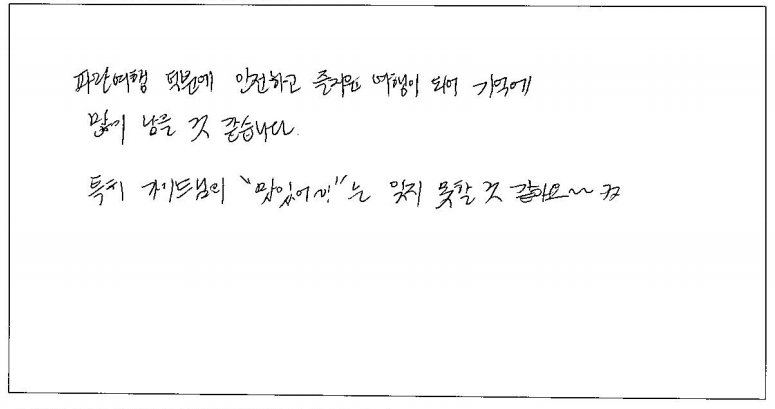 파란여행 덕분에 안전하고 즐거운 여행이 되어 기억에
많이 남을 것 같습니다.
특히 가이드님의 "맛있어!"는 잊지 못할 것 같아요~ ㅋㅋ